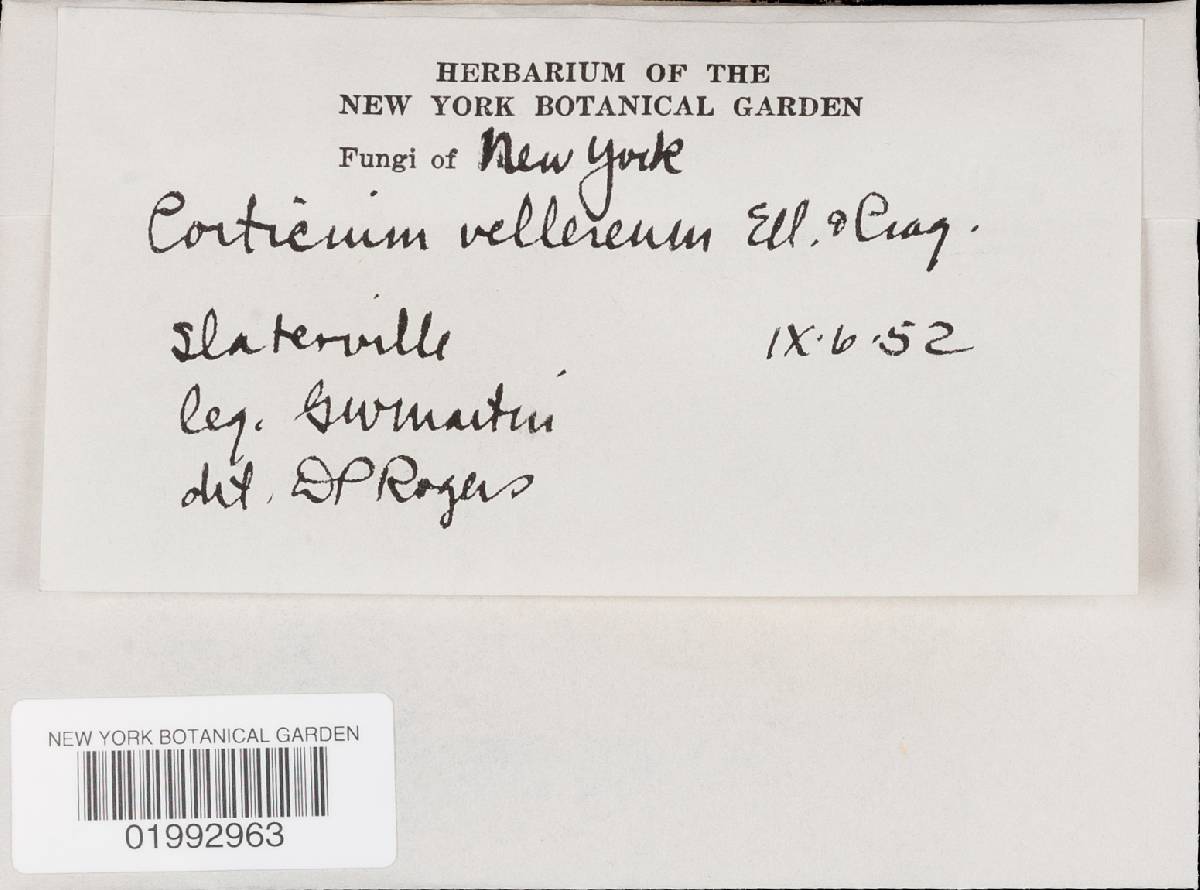 HERBARIUM OF THE
NEW YORK BOTANICAL GARDEN
Fungi of New York
Corticium vellereum Ell. & Crag.
Slaterville IX.6.52
leg. GWMartin
det. DPRogers
NEW YORK BOTANICAL GARDEN
01992963